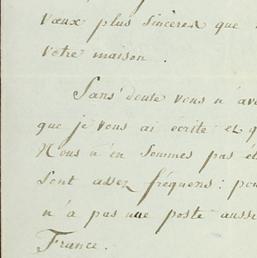 vœux plus sincères que
votre maison.
Sans doute vous n'ave
que je vous ai écrite et q
Nous n'en sommes pas ét
sont assez fréquens : pou
n'a pas une poste aussi
France.